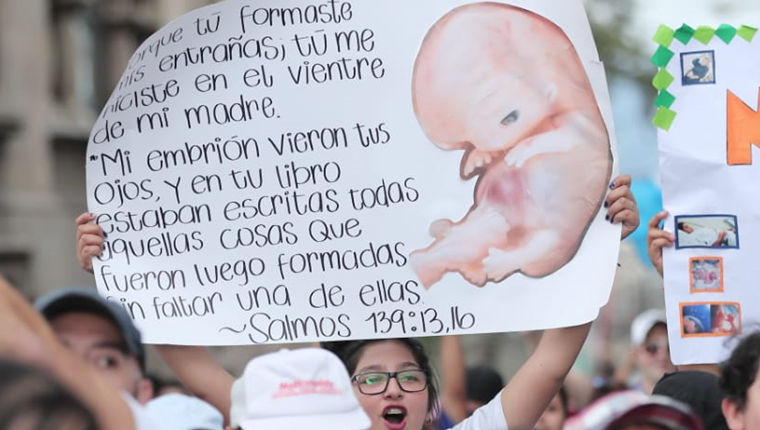 Porque tú formaste
mis entrañas; tú me
hiciste en el vientre
de mi madre.
"Mi embrión vieron tus
ojos, y en tu libro
estaban escritas todas
aquellas cosas que
fueron luego formadas
sin faltar una de ellas.
~Salmos 139:13,16